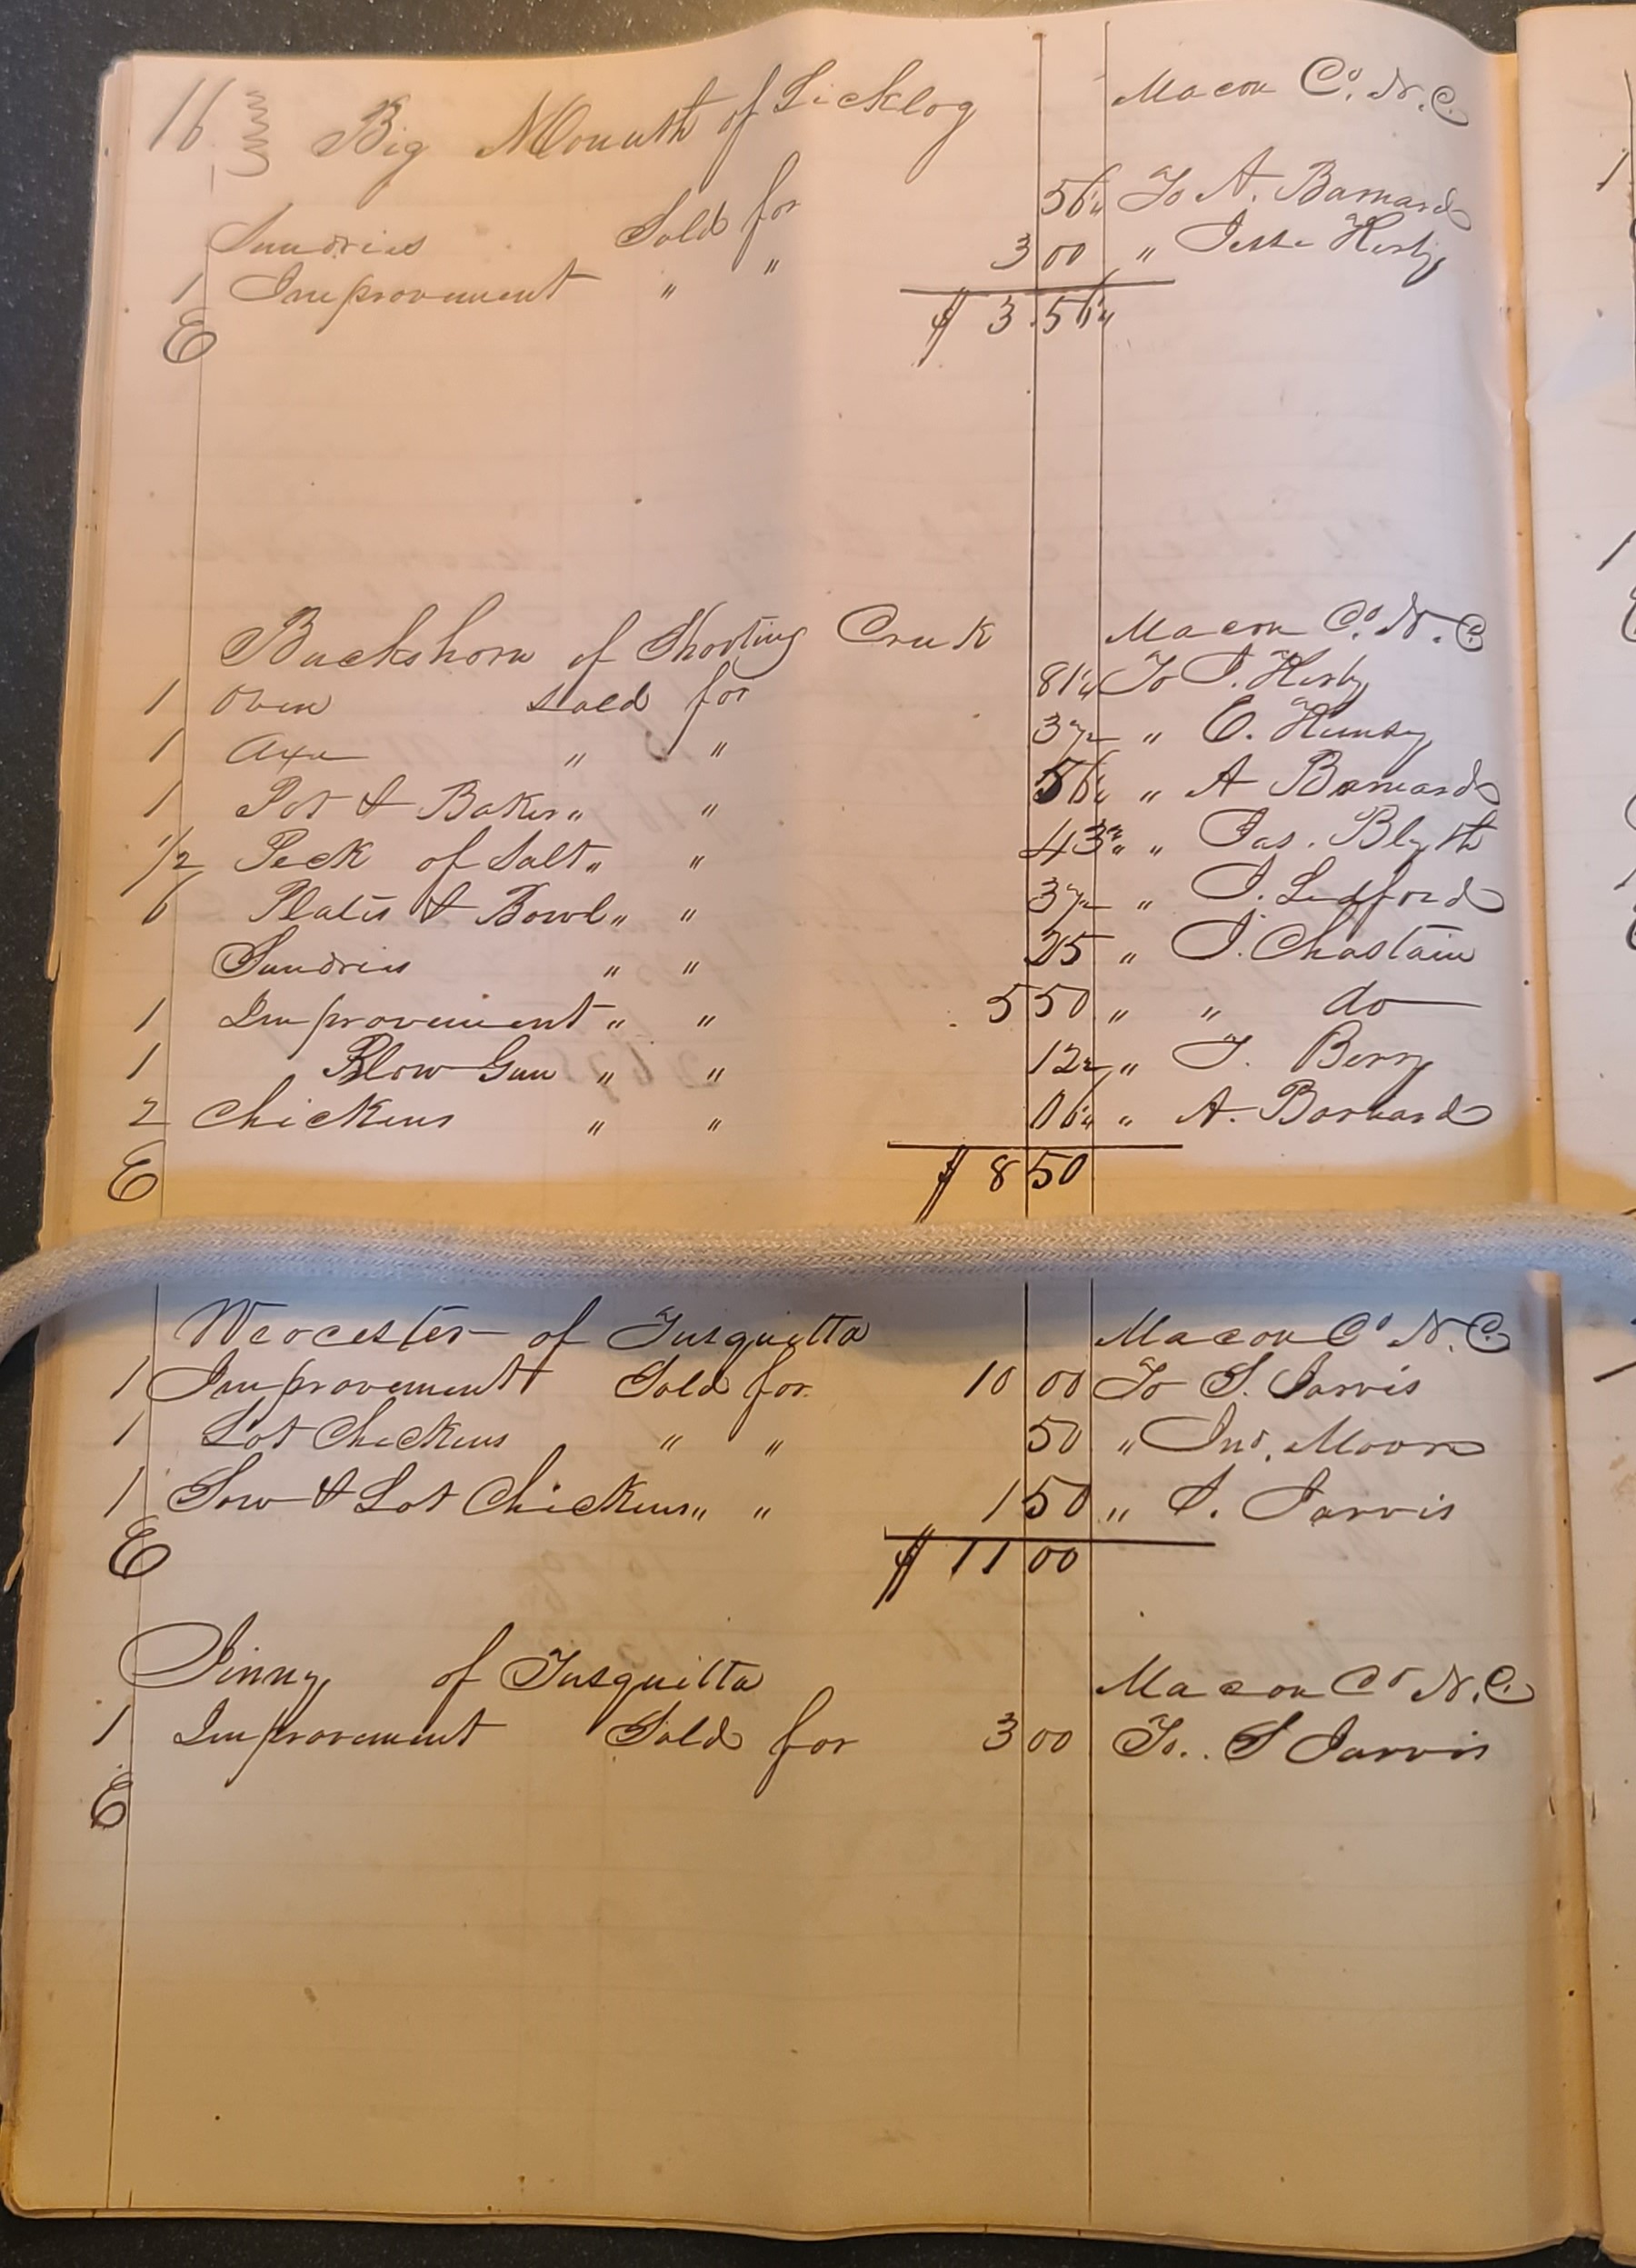 16 Big Mouuth of Licklog Macon Co. N.C.
Sundries Sold for 56¼ To A. Barnard
1 Improvement " " 3 00 " Jesse Kirby
E $ 3.56¼
Buckshorn of Shooting Creek Macon Co. N.C.
1 Oven sold for 81¼ To J. Kirby
1 Axe " " 37½ " E.
1 Pot & Baker " " 56¼ " A Barnard
1/2 Peck of Salt " " 43¾ " Jas. Blyth
6 Plates & Bowl " " 37½ " J. Ledford
Sundries " " 25 " J. Chastain
1 Improvement " " 5 50 " " do
1 Blow Gun " " 12½ " J. Berry
2 Chickens " " 06¼ " A. Barnard
E $ 8 50
Worcester of Tusquitta Macon Co N.C.
1 Improvement Sold for 10 00 To S. Jarvis
1 Lot Chickens " " 50 " Jno. Moore
1 Sow & Lot Chickens " " 1 50 " S. Jarvis
E $ 11 00
Jinny of Tusquitta Macon Co N.C.
1 Improvement Sold for 3 00 To.. S Jarvis
E